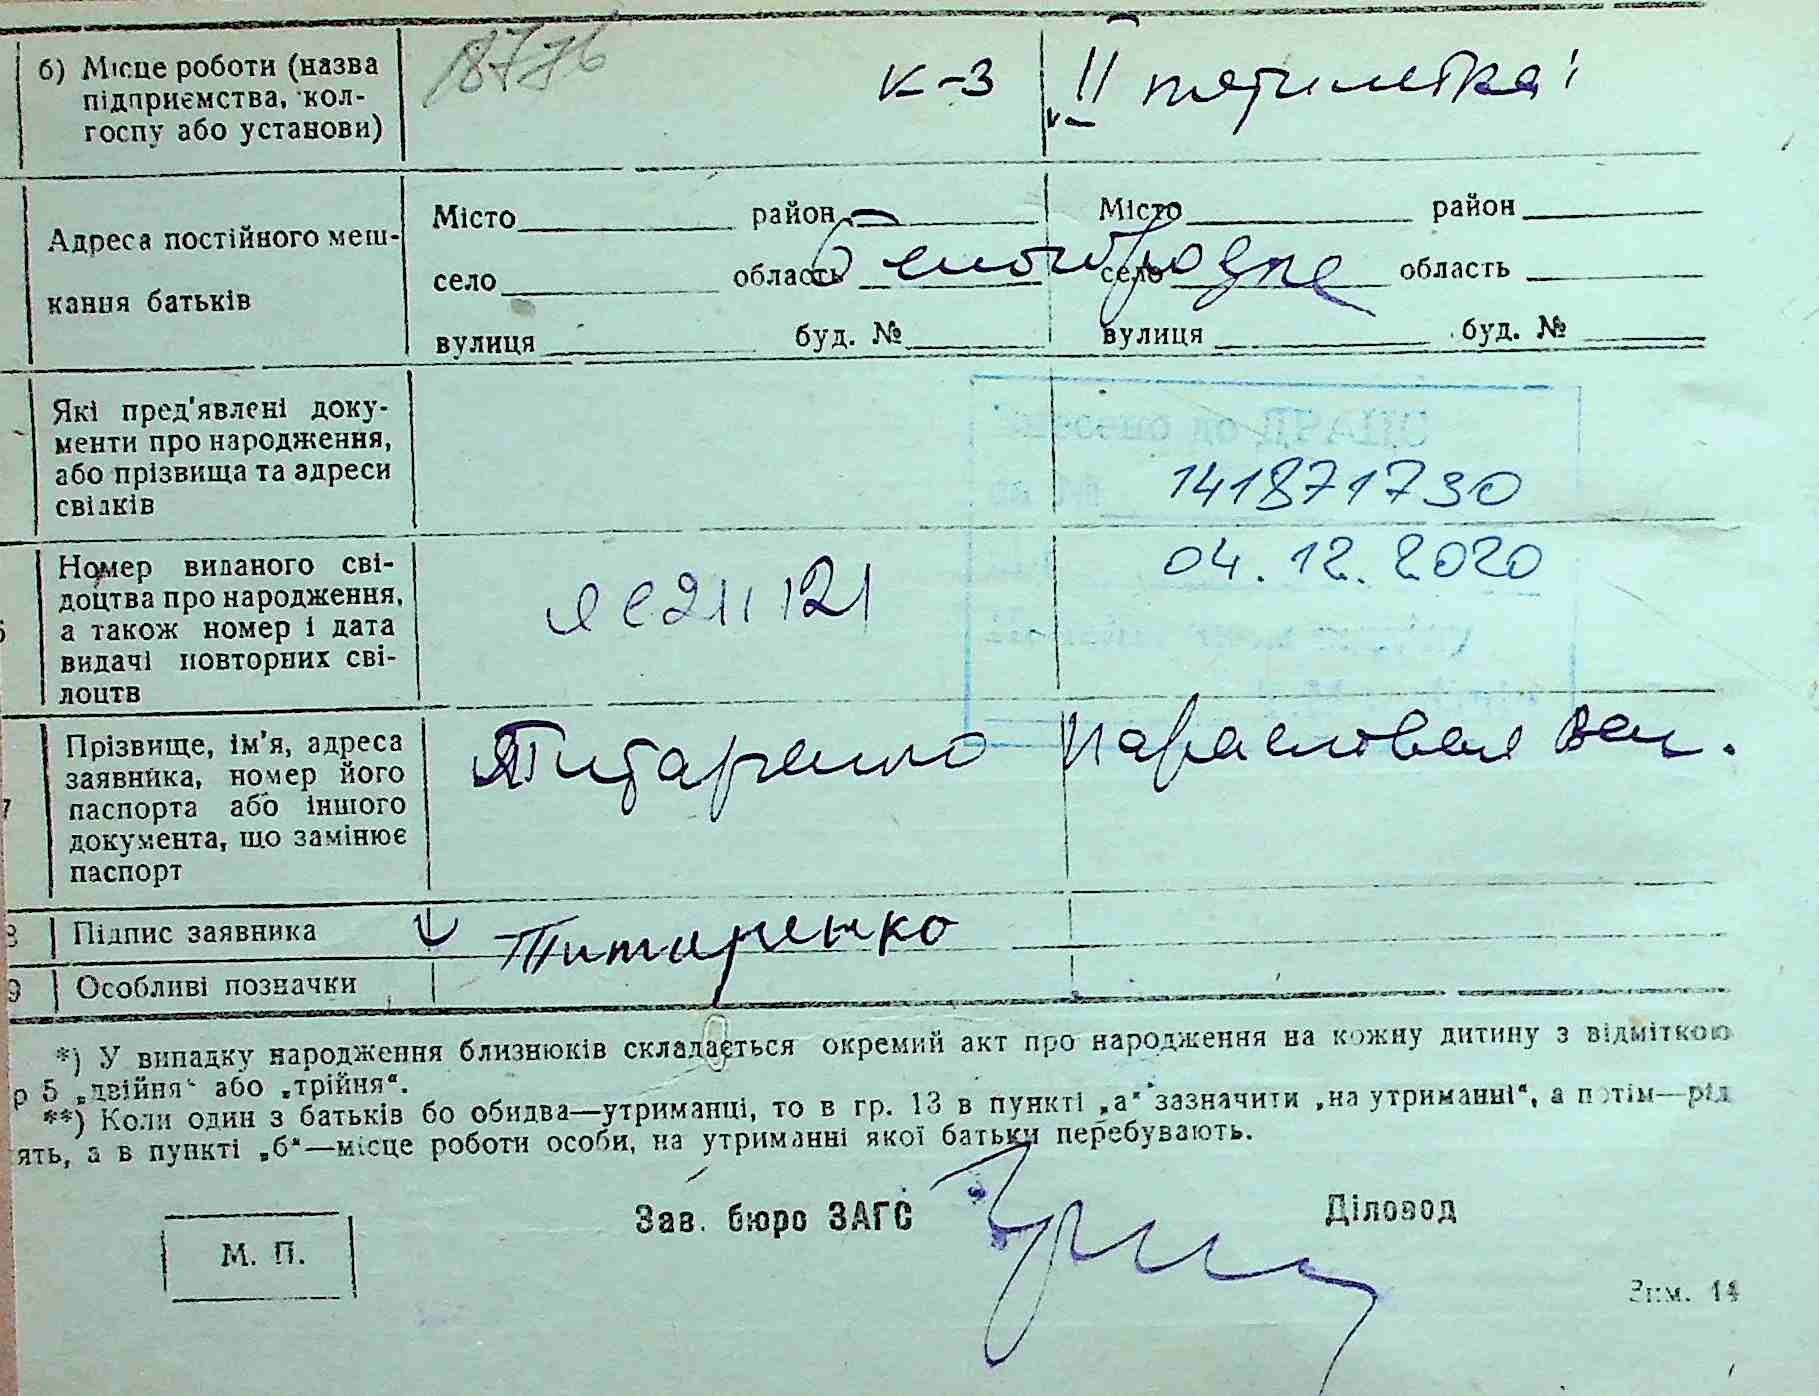 18776
б) Місце роботи (назва
підприємства, кол-
госпу або установи)
к-з II пятилетка
Адреса постійного меш-
кання батьків
Місто район
село область
вулиця буд. №
Місто район
село область
вулиця буд. №
Які пред'явлені доку-
менти про народження,
або прізвища та адреси
свідків
141871730
04.12.2020
Номер виданого сві-
доцтва про народження,
а також номер і дата
видачі повторних сві-
доцтв
Прізвище, ім'я, адреса
заявника, номер його
паспорта або іншого
документа, що замінює
паспорт
Титаренко
8 Підпис заявника
Титаренко
9 Особливі позначки
*) У випадку народження близнюків складається окремий акт про народження на кожну дитину з відміткою
р 5 „двійня“ або „трійня“.
**) Коли один з батьків бо обидва—утриманці, то в гр. 13 в пункті „а“ зазначити „на утриманні“, а потім—рід
ять, а в пункті „б“—місце роботи особи, на утриманні якої батьки перебувають.
Зав. бюро ЗАГС
Діловод
М. П.
Зим. 14